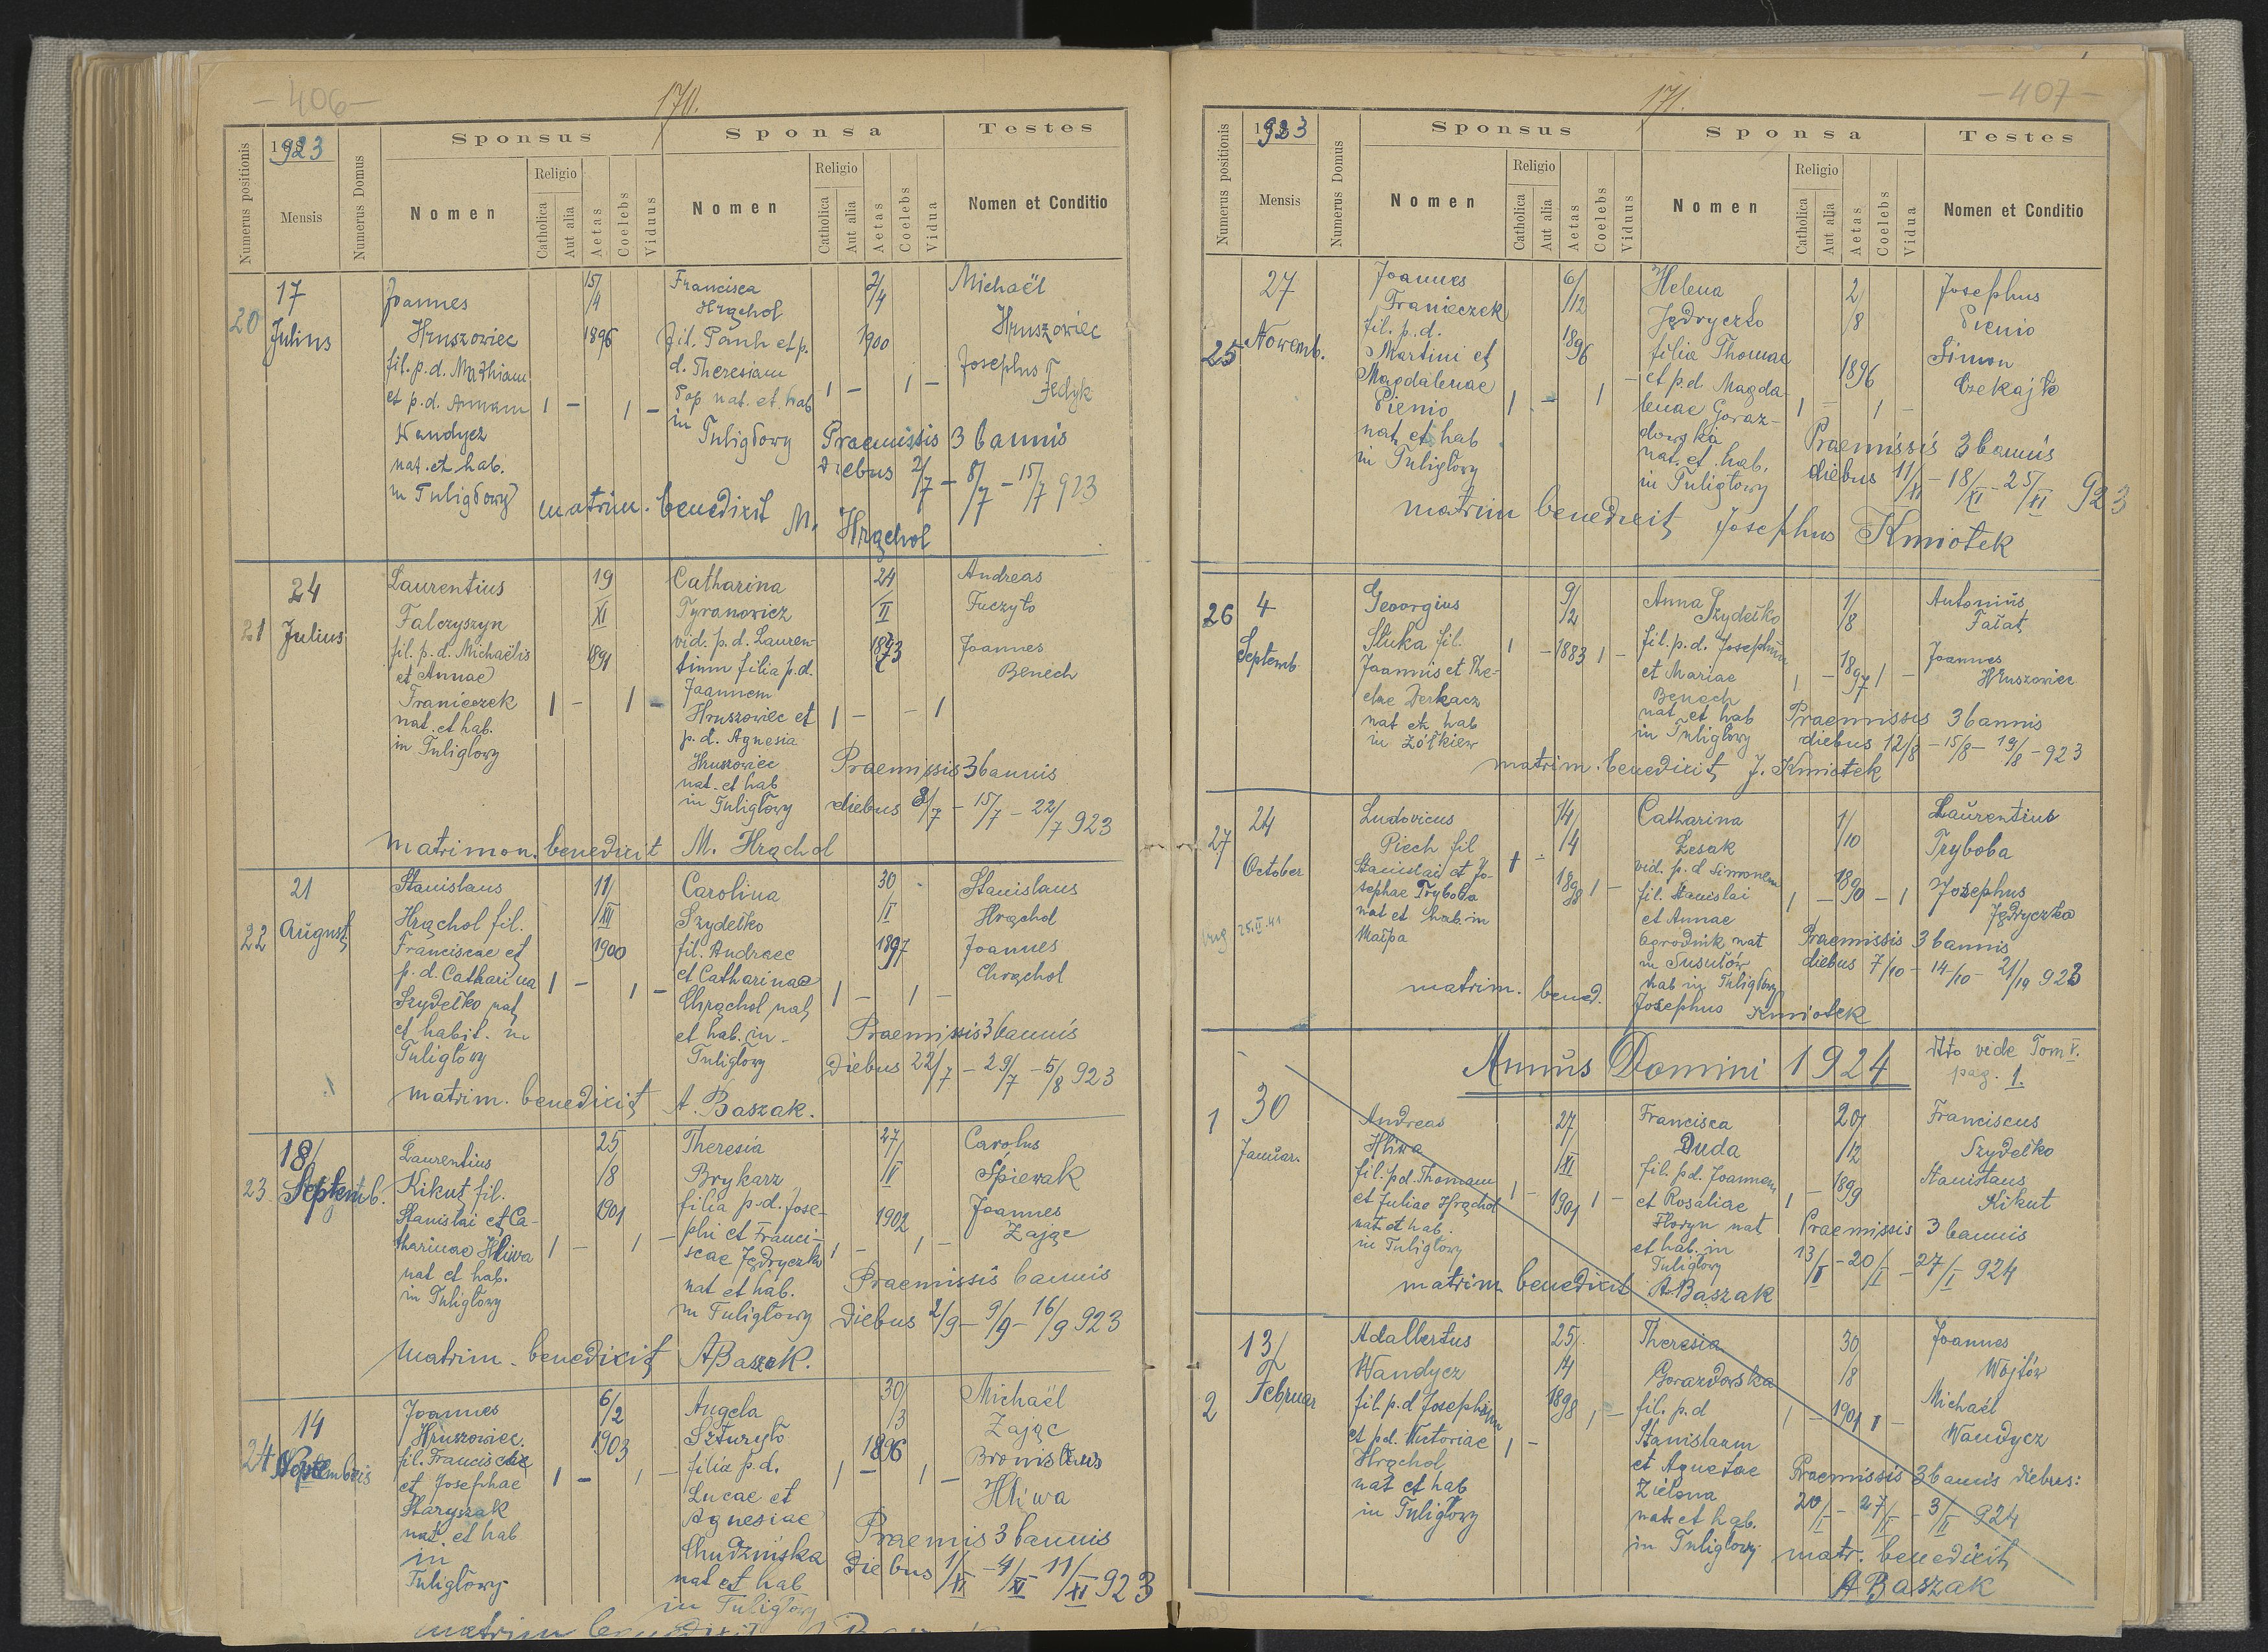 - 406 -
170.
1923
Mensis
Numerus positionis
Numerus Domus
Sponsus
Nomen
Religio
Catholica
Aut alia
Aetas
Coelebs
Viduus
Sponsa
Nomen
Religio
Catholica
Aut alia
Aetas
Coelebs
Vidua
Testes
Nomen et Conditio
20
17
Julius
Joannes
Hruszowiec
fil. p.d. Mathiam
et p.d. Annam
Wandycz
nat. et hab.
in Tuligłowy
1 - 1 -
15/4
1896
Francisca
Hrąchol
fil. Pauli et p.
d. Theresiam
Pap nat. et hab
in Tuligłowy
2/4
1900
1 - 1 -
Michaël
Hruszowiec
Josephus
Fedyk
Praemissis 3 bannis
diebus 2/7 - 8/7 - 15/7 923
matrim. benedixit M. Hrąchol
21
24
Julius
Laurentius
Falczyszyn
fil. p.d. Michaëlis
et Annae
Franieczek
nat. et hab.
in Tuligłowy
19
XI
1891
1 - 1 -
Catharina
Tyranowicz
vid. p.d. Lauren-
tium filia p.d.
Joannem
Hruszowiec et
p.d. Agnesia
Hruszowiec
nat. et hab
in Tuligłowy
24
II
1893
1 - - 1
Andreas
Fuczyło
Joannes
Benech
Praemissis 3 bannis
diebus 8/7 - 15/7 - 22/7 923
matrimon. benedixit M. Hrąchol
22
21
August
Stanislaus
Hrąchol fil.
Franciscae et
p.d. Catharina
Szydełko nat
et habit. in
Tuligłowy
11/XII
1900
1 - 1 -
Carolina
Szydełko
fil. Andraee
et Catharinae
Chrąchol nat
et hab. in
Tuligłowy
30/I
1897
1 - 1 -
Stanislaus
Hrąchol
Joannes
Chrąchol
Praemissis 3 bannis
diebus 22/7 - 29/7 - 5/8 923
matrim. benedixit A. Baszak.
23
18/
Septemb.
Laurentius
Kikut fil.
Stanislai et Ca-
tharinae Hliwa
nat et hab.
in Tuligłowy
25/8
1901
1 - 1 -
Theresia
Brykarz
filia p.d. Jose-
phi et Franci-
scae Jędryczko
nat et hab.
in Tuligłowy
27/IV
1902
1 - 1 -
Carolus
Spiewak
Joannes
Zając
Praemissis bannis
Diebus 2/9 - 9/9 - 16/9 923
Matrim. benedixit A Baszak.
24
14
Joannes
Hruszowiec
fil. Franciscae
et Josephae
Staryszak
nat. et hab
in
Tuligłowy
6/2
1903
1 - 1 -
Angela
Szturyło
filia p.d.
Lucae et
Agnesiae
Chudzińska
nat et hab
in Tuligłowy
30/3
1896
1 - 1 -
Michaël
Zając
Bronislaus
Hliwa
Praemis 3 bannis
Diebus 1/XI - 4/XI - 11/XI 923
- 407 -
171.
1923
Mensis
Numerus positionis
Numerus Domus
Sponsus
Nomen
Religio
Catholica
Aut alia
Aetas
Coelebs
Viduus
Sponsa
Nomen
Religio
Catholica
Aut alia
Aetas
Coelebs
Vidua
Testes
Nomen et Conditio
25
27
Nowemb.
Joannes
Franieczek
fil. p.d.
Martini et
Magdalenae
Pienio
nat et hab
in Tuligłowy
6/12
1896
1 - 1 -
Helena
Jędryczko
filia Thomae
et p.d. Magda-
lenae Goraz-
dowska
nat. et hab.
in Tuligłowy
2/8
1896
1 - 1 -
Josephus
Pienio
Simon
Czekajło
Praemissis 3 bannis
diebus 11/XI - 18/XI - 25/XI 923
matrim benedixit Josephus Kmiotek
26
4
Septemb
Georgius
Słuka fil.
Joannis et The-
clae Derkacz
nat et hab
in Żółkiew
9/2
1883
1 - 1 -
Anna Szydełko
fil. p.d. Josephum
et Mariae
Benech
nat et hab
in Tuligłowy
1/8
1897
1 - 1 -
Antonius
Fałat
Joannes
Hruszowiec
Praemissis 3 bannis
diebus 12/8 - 15/8 - 19/8 - 923
matrim. benedixit J. Kmiotek
27
24
October
25.II.41
Ludovicus
Piech fil
Stanislai et Jo-
sephae Tryboba
nat et hab in
Małpa
14/4
1898
1 - 1 -
Catharina
Lesak
vid. p.d Simonem
fil. Stanislai
et Annae
Ogrodnik nat
in Susułów
hab in Tuligłowy
1/10
1890
1 - - 1
Laurentius
Tryboba
Josephus
Jędryczko
Praemissis 3 bannis
diebus 7/10 - 14/10 - 21/10 923
matrim. bened. Josephus Kmiotek
Annus Domini 1924
vide Tom V.
pag. 1.
1
30
Januar.
Andreas
Hliwa
fil. pd. Thomam
et Juliae Hrąchol
nat et hab.
in Tuligłowy
27/XI
1901
1 - 1 -
Francisca
Duda
fil. pd. Joannem
et Rosaliae
Floryn nat
et hab. in
Tuligłowy
20/12
1899
1 -
Franciscus
Szydełko
Stanislaus
Kikut
Praemissis 3 bannis
13/I - 20/I - 27/I 924
matrim benedixit A. Baszak
2
13/
Februar
Adalbertus
Wandycz
fil. p.d Josephum
et pd. Victoriae
Hrąchol
nat et hab
in Tuligłowy
25/4
1898
1 - 1 -
Theresia
Gorazdowska
fil. p.d
Stanislaum
et Agnetae
Zielona
nat et hab.
in Tuligłowy
30/8
1901
1 - 1 -
Joannes
Wojtów
Michaël
Wandycz
Praemissis 3 bannis diebus:
20/I - 27/I - 3/II 924
matr. benedixit
A Baszak